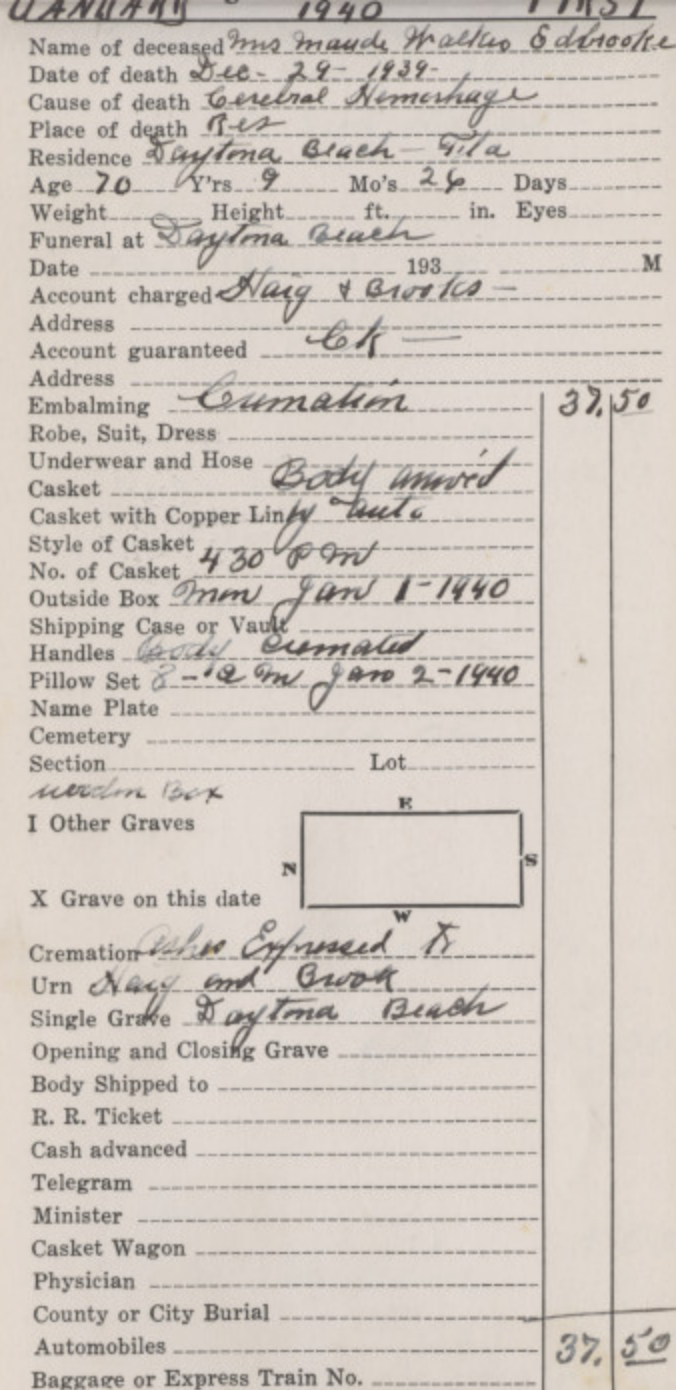 JANUARY 1940 FIRST
Name of deceased Mrs Maude Walker Edbrooke
Date of death Dec - 29 - 1939 -
Cause of death Cerebral Hemorhage
Place of death Res
Residence Daytona Beach - Fla
Age 70 Y'rs 9 Mo's 26 Days
Weight Height ft. in. Eyes
Funeral at Daytona Beach
Date 193 M
Account charged Haig & Brooks -
Address
Account guaranteed Ck —
Address
Embalming Cremation 37.50
Robe, Suit, Dress
Underwear and Hose
Casket Body arrived
Casket with Copper Lin by auto
Style of Casket
No. of Casket 430 PM
Outside Box Mon Jan 1 - 1940
Shipping Case or Vault
Handles Body Cremated
Pillow Set 8 - A M Jan 2 - 1940
Name Plate
Cemetery
Section Lot
wooden Box
E
I Other Graves
N S
X Grave on this date
W
Cremation Ashes Expressed to
Urn Haig and Brook
Single Grave Daytona Beach
Opening and Closing Grave
Body Shipped to
R. R. Ticket
Cash advanced
Telegram
Minister
Casket Wagon
Physician
County or City Burial
Automobiles 37.50
Baggage or Express Train No.